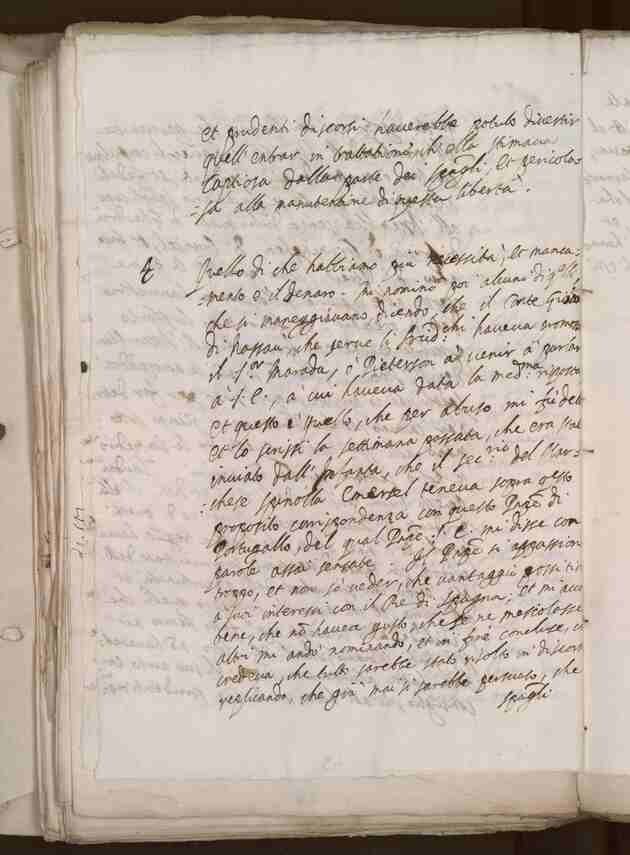 et prudenti discorsi hauerebbe potuto diuertir
quell'entrar in trattatione, ch'ella stimaua
Captiosa dalla parte dei spag.li, et pericolo=
=sa alla manutentione di questa libertà.
Quello di che habbiamo più necessità, et manca=
=mento è il denaro. Mi nominò poi alcuni di q.lli
che si maneggiauano, dicendo, che il Conte
di Nassau, che serue li Arcid.chi haueua promosso
il S.or Marada, ò Pieterson à venir à parlar
à S.E., à cui haueua data la med.ma risposta
et questo è quello, che per altro mi fù detto
et lo scrissi la settimana passata, che era stato
inuiato dall'Infanta, che il sec.rio del Mar=
=chese Spinola teneua sopra q.to
proposito corrispondenza con questo Prñpe di
Portugallo, del qual Prñpe S.E. mi disse con
parole assai sensate. Il Prñpe si appassiona
troppo, et non sò ueder, che uantaggij
a suoi interessi con il Rè di Spagna; et mi
bene, che nõ haueua gusto che se ne mescolasse
altri mi andò nominando, et in fine concluse,
credeua, che tutto sarebbe stato risolto in discorsi
replicando, che già mai si sarebbe persuaso, che
spag.li